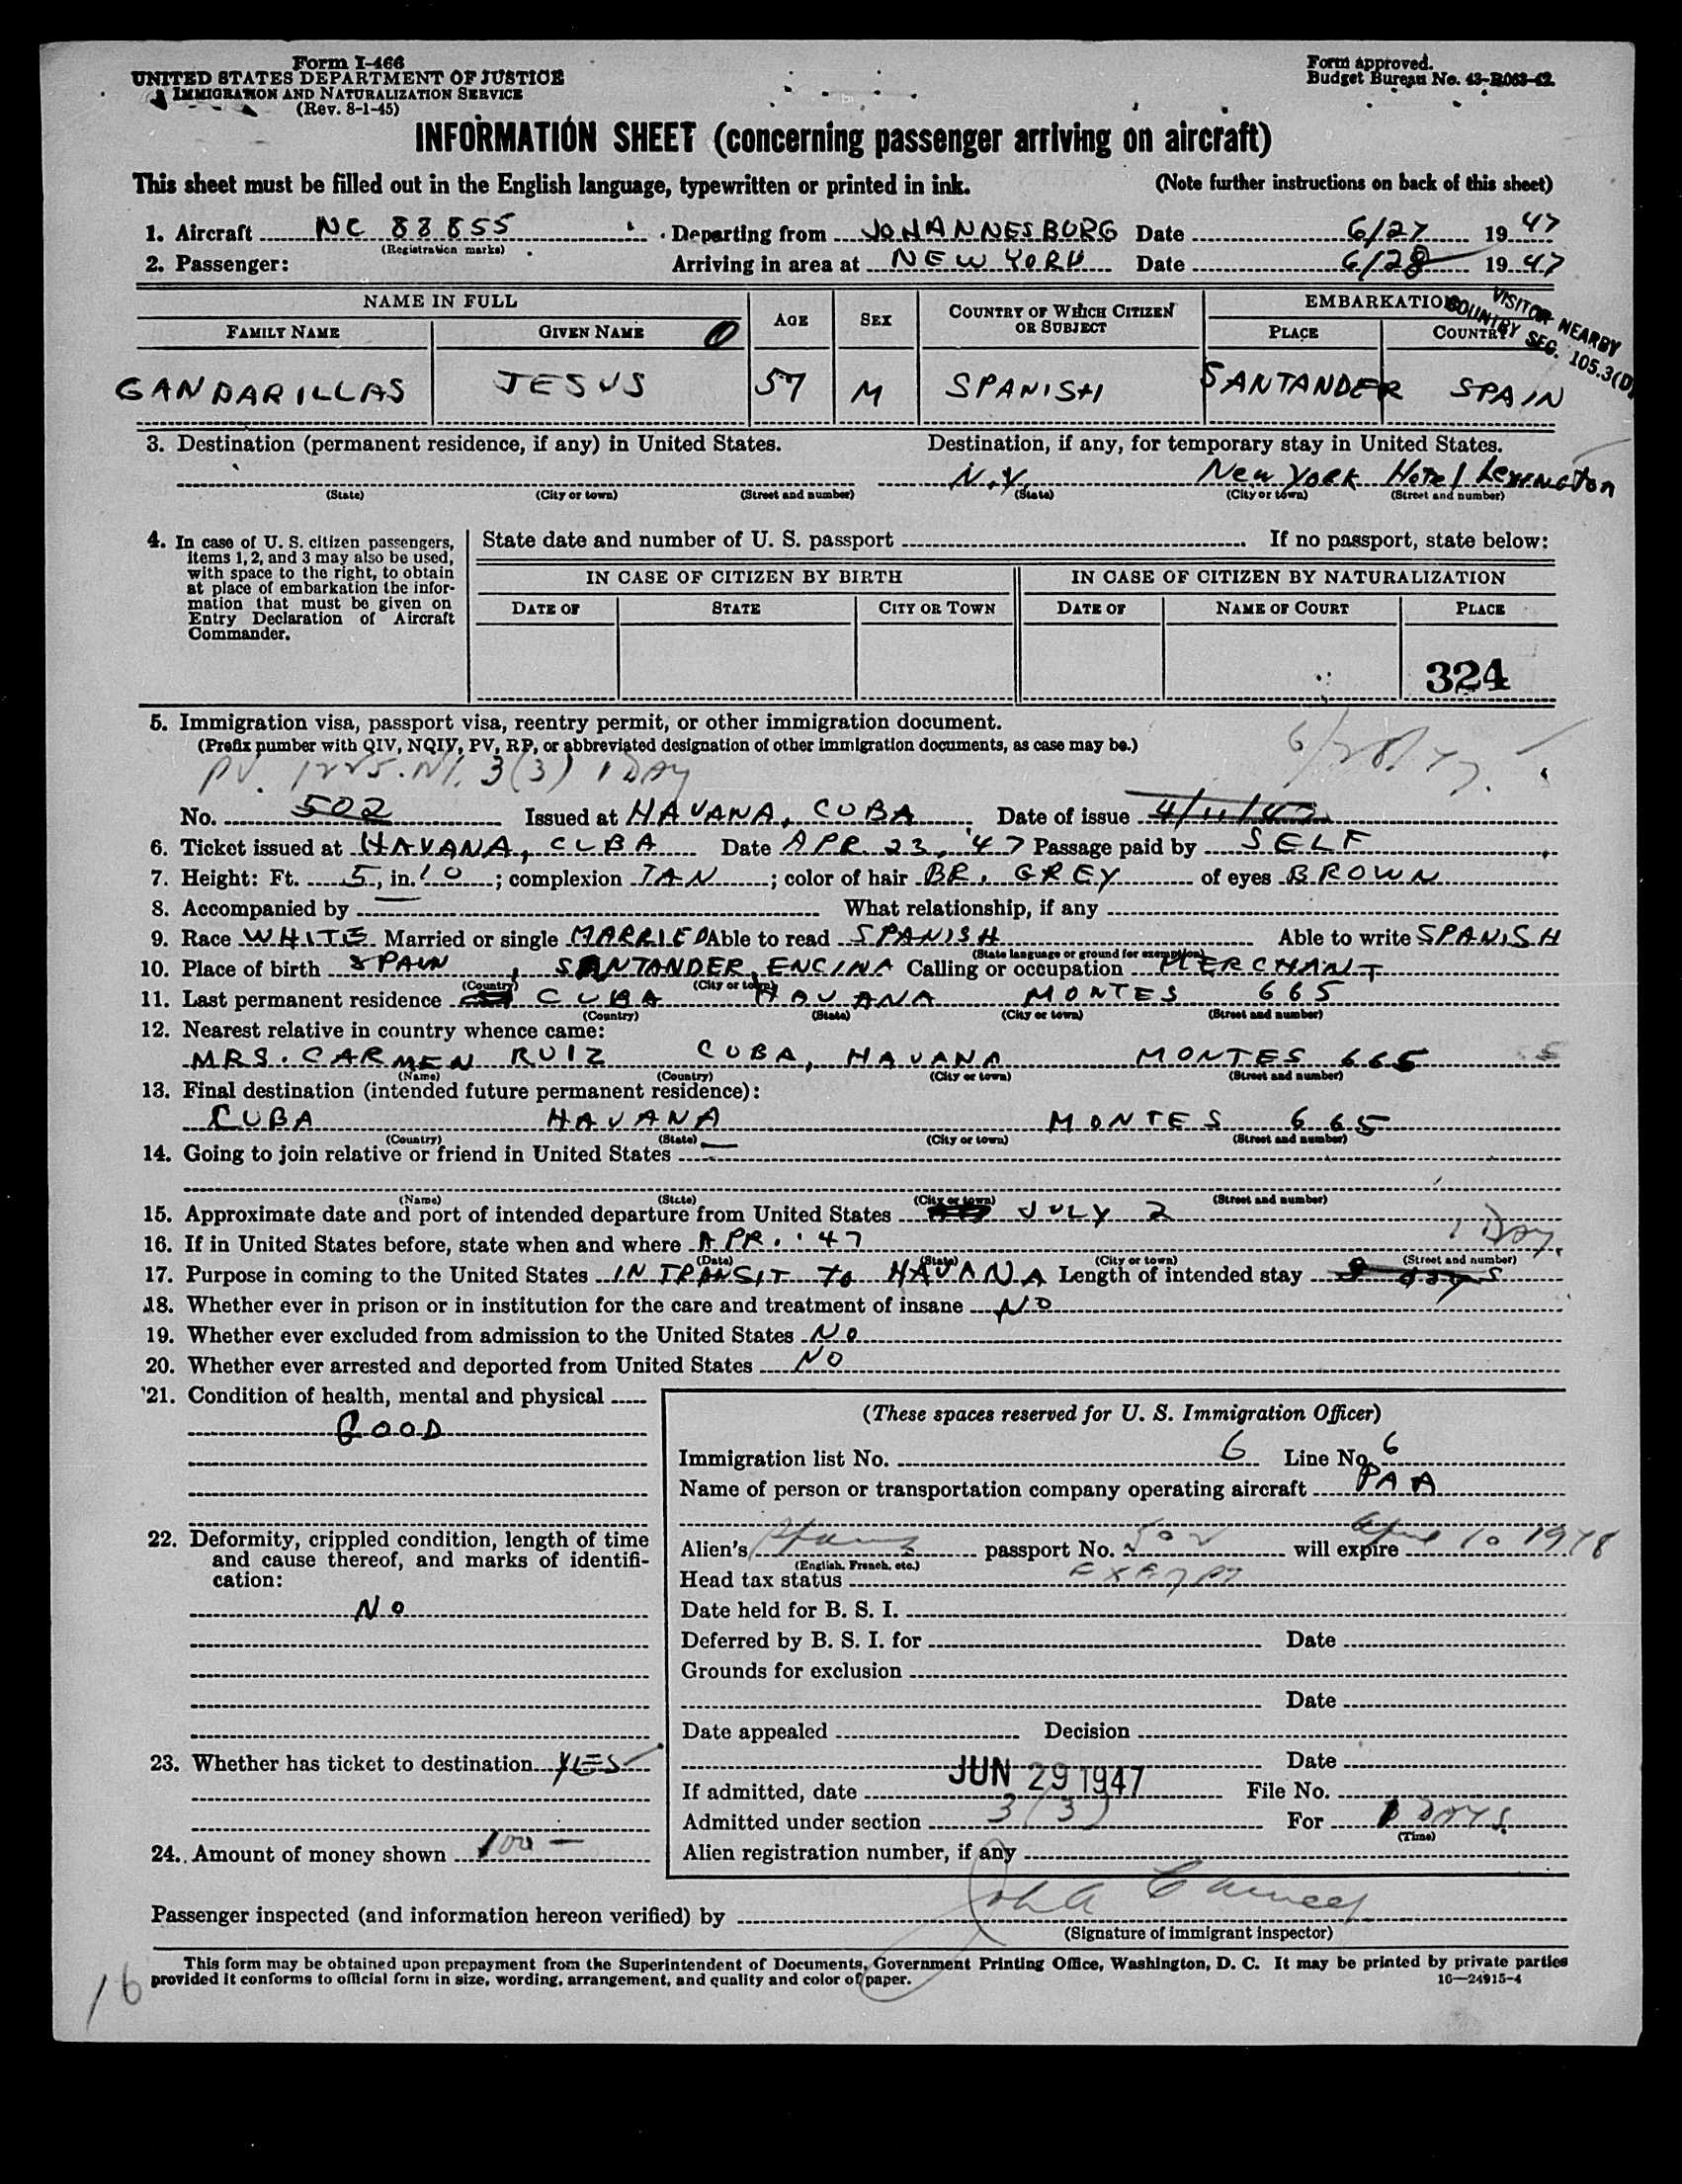 Form I-466
UNITED STATES DEPARTMENT OF JUSTICE
IMMIGRATION AND NATURALIZATION SERVICE
(Rev. 8-1-45)
Form approved.
Budget Bureau No. 43-R063-42.
INFORMATION SHEET (concerning passenger arriving on aircraft)
This sheet must be filled out in the English language, typewritten or printed in ink. (Note further instructions on back of this sheet)
1. Aircraft NC 88855 Departing from JOHANNESBURG Date 6/27 1947
(Registration marks)
2. Passenger: Arriving in area at NEW YORK Date 6/28 1947
NAME IN FULL AGE SEX COUNTRY OF WHICH CITIZEN OR SUBJECT EMBARKATION
FAMILY NAME GIVEN NAME PLACE COUNTRY
VISITOR NEARBY
COUNTRY SEC. 105.3(D)
GANDARILLAS JESUS 57 M SPANISH SANTANDER SPAIN
3. Destination (permanent residence, if any) in United States. Destination, if any, for temporary stay in United States.
N.Y. New York Hotel Lexington
(State) (City or town) (Street and number) (State) (City or town) (Street and number)
4. In case of U. S. citizen passengers, items 1, 2, and 3 may also be used, with space to the right, to obtain at place of embarkation the information that must be given on Entry Declaration of Aircraft Commander.
State date and number of U. S. passport If no passport, state below:
IN CASE OF CITIZEN BY BIRTH IN CASE OF CITIZEN BY NATURALIZATION
DATE OF STATE CITY OR TOWN DATE OF NAME OF COURT PLACE
324
5. Immigration visa, passport visa, reentry permit, or other immigration document.
(Prefix number with QIV, NQIV, PV, RP, or abbreviated designation of other immigration documents, as case may be.)
PV. 1225. 3(3) 1 DAY 6/28/47.
No. 502 Issued at HAVANA, CUBA Date of issue 4/11/47
6. Ticket issued at HAVANA, CUBA Date APR. 23, '47 Passage paid by SELF
7. Height: Ft. 5, in. 10; complexion TAN; color of hair BR. GREY of eyes BROWN
8. Accompanied by What relationship, if any
9. Race WHITE Married or single MARRIED Able to read SPANISH Able to write SPANISH
(State language or ground for exemption)
10. Place of birth SPAIN, SANTANDER, ENCINA Calling or occupation MERCHANT
(Country) (City or town)
11. Last permanent residence CUBA HAVANA MONTES 665
(Country) (State) (City or town) (Street and number)
12. Nearest relative in country whence came:
MRS. CARMEN RUIZ CUBA, HAVANA MONTES 665
(Name) (Country) (City or town) (Street and number)
13. Final destination (intended future permanent residence):
CUBA HAVANA MONTES 665
(Country) (State) (City or town) (Street and number)
14. Going to join relative or friend in United States
(Name) (State) (City or town) (Street and number)
15. Approximate date and port of intended departure from United States JULY 2
16. If in United States before, state when and where APR. '47 1 Day.
(Date) (State) (City or town) (Street and number)
17. Purpose in coming to the United States IN TRANSIT TO HAVANA Length of intended stay days
18. Whether ever in prison or in institution for the care and treatment of insane NO
19. Whether ever excluded from admission to the United States NO
20. Whether ever arrested and deported from United States NO
21. Condition of health, mental and physical
GOOD
22. Deformity, crippled condition, length of time and cause thereof, and marks of identification:
NO
23. Whether has ticket to destination YES
24. Amount of money shown 100 -
(These spaces reserved for U. S. Immigration Officer)
Immigration list No. 6 Line No. 6
Name of person or transportation company operating aircraft PAA
Alien's passport No. 502 will expire April 10 1948
(English, French, etc.)
Head tax status EXEMPT
Date held for B. S. I.
Deferred by B. S. I. for Date
Grounds for exclusion
Date
Date appealed Decision
Date
If admitted, date JUN 29 1947 File No.
Admitted under section 3(3) For 1 DAYS
(Time)
Alien registration number, if any
Passenger inspected (and information hereon verified) by
(Signature of immigrant inspector)
This form may be obtained upon prepayment from the Superintendent of Documents, Government Printing Office, Washington, D. C. It may be printed by private parties
provided it conforms to official form in size, wording, arrangement, and quality and color of paper. 16—24915-4
16